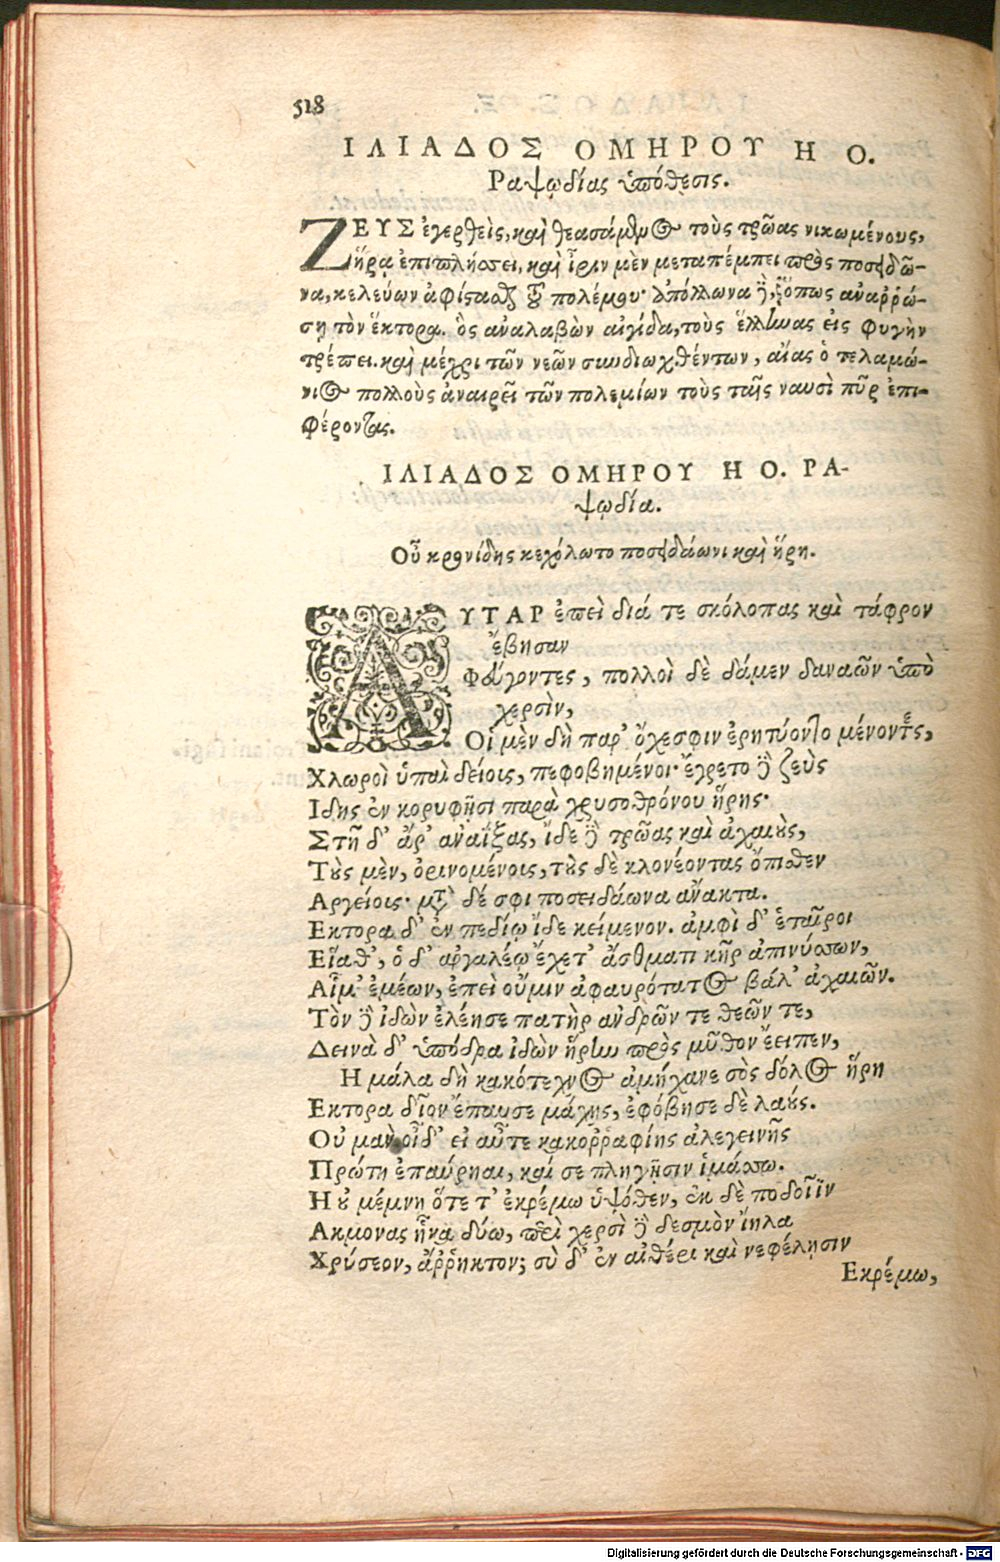 518
ΙΛΙΑΔΟΣ ΟΜΗΡΟΥ Η Ο.
Ραψῳδίας ὑπόθεσις.
ΖΕΥΣ ἐγερθεὶς, καὶ θεασάμενος τοὺς τρῶας νικωμένους,
ἥρᾳ ἐπιπλήσσει, καὶ ἶριν μὲν μεταπέμπει πρὸς ποσειδῶ-
να, κελεύων ἀφίστασθαι τοῦ πολέμου· ἀπόλλωνα δὲ, ὅπως ἀναῤῥώ-
σῃ τὸν ἕκτορα. ὃς ἀναλαβὼν αἰγίδα, τοὺς ἕλληνας εἰς φυγὴν
τρέπει. καὶ μέχρι τῶν νεῶν συνδιωχθέντων, αἴας ὁ τελαμώ-
νιος πολλοὺς ἀναιρεῖ τῶν πολεμίων τοὺς ταῖς ναυσὶ πῦρ ἐπι-
φέροντας.
ΙΛΙΑΔΟΣ ΟΜΗΡΟΥ Η Ο. ΡΑ-
ψῳδία.
Οὗ κρονίδης κεχόλωτο ποσειδάωνι καὶ ἥρῃ.
ΑΥΤΑΡ ἐπεὶ διά τε σκόλοπας καὶ τάφρον
ἔβησαν
Φεύγοντες, πολλοὶ δὲ δάμεν δαναῶν ὑπὸ
χερσὶν,
Οἱ μὲν δὴ παρ' ὄχεσφιν ἐρητύοντο μένοντες,
Χλωροὶ ὑπαὶ δείοις, πεφοβημένοι· ἔγρετο δὲ ζεὺς
Ιδης ἐν κορυφῇσι παρὰ χρυσοθρόνου ἥρης·
Στῆ δ' ἄρ' ἀναΐξας, ἴδε δὲ τρῶας καὶ ἀχαιοὺς,
Τοὺς μὲν, ὀρινομένοις, τοὺς δὲ κλονέοντας ὄπισθεν
Αργείοις· μετὰ δέ σφι ποσειδάωνα ἄνακτα.
Εκτορα δ' ἐν πεδίῳ ἴδε κείμενον. ἀμφὶ δ' ἑταῖροι
Εἵαθ', ὁ δ' ἀργαλέῳ ἔχετ' ἄσθματι κῆρ ἀπινύσσων,
Αἷμ' ἐμέων, ἐπεὶ οὔμιν ἀφαυρότατος βάλ' ἀχαιῶν.
Τὸν δὲ ἰδὼν ἐλέησε πατὴρ ἀνδρῶν τε θεῶν τε,
Δεινὰ δ' ὑπόδρα ἰδὼν ἥρην πρὸς μῦθον ἔειπεν,
Η μάλα δὴ κακότεχνος ἀμήχανε σὸς δόλος ἥρη
Εκτορα δῖον ἔπαυσε μάχης, ἐφόβησε δὲ λαούς.
Οὐ μὰν οἶδ' εἰ αὖτε κακοῤῥαφίης ἀλεγεινῆς
Πρώτη ἐπαύρηαι, καί σε πληγῇσιν ἱμάσσω.
Η οὐ μέμνη ὅτε τ' ἐκρέμω ὑψόθεν, ἐκ δὲ ποδοῖϊν
Ακμονας ἧκα δύω, περὶ χερσὶ δὲ δεσμὸν ἴηλα
Χρύσεον, ἄῤῥηκτον; σὺ δ' ἐν αἰθέρι καὶ νεφέλῃσιν
Εκρέμω,
Digitalisierung gefördert durch die Deutsche Forschungsgemeinschaft - DFG